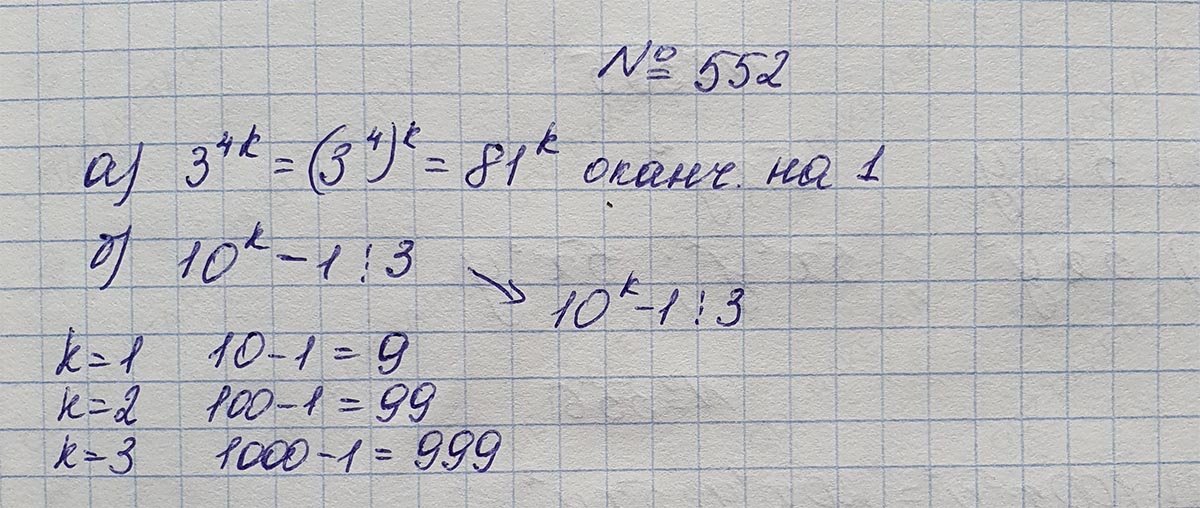 № 552
а) 3^{4k} = (3^4)^k = 81^k оканч. на 1
б) 10^k - 1 ⋮ 3
↘ 10^k - 1 ⋮ 3
k = 1 10 - 1 = 9
k = 2 100 - 1 = 99
k = 3 1000 - 1 = 999